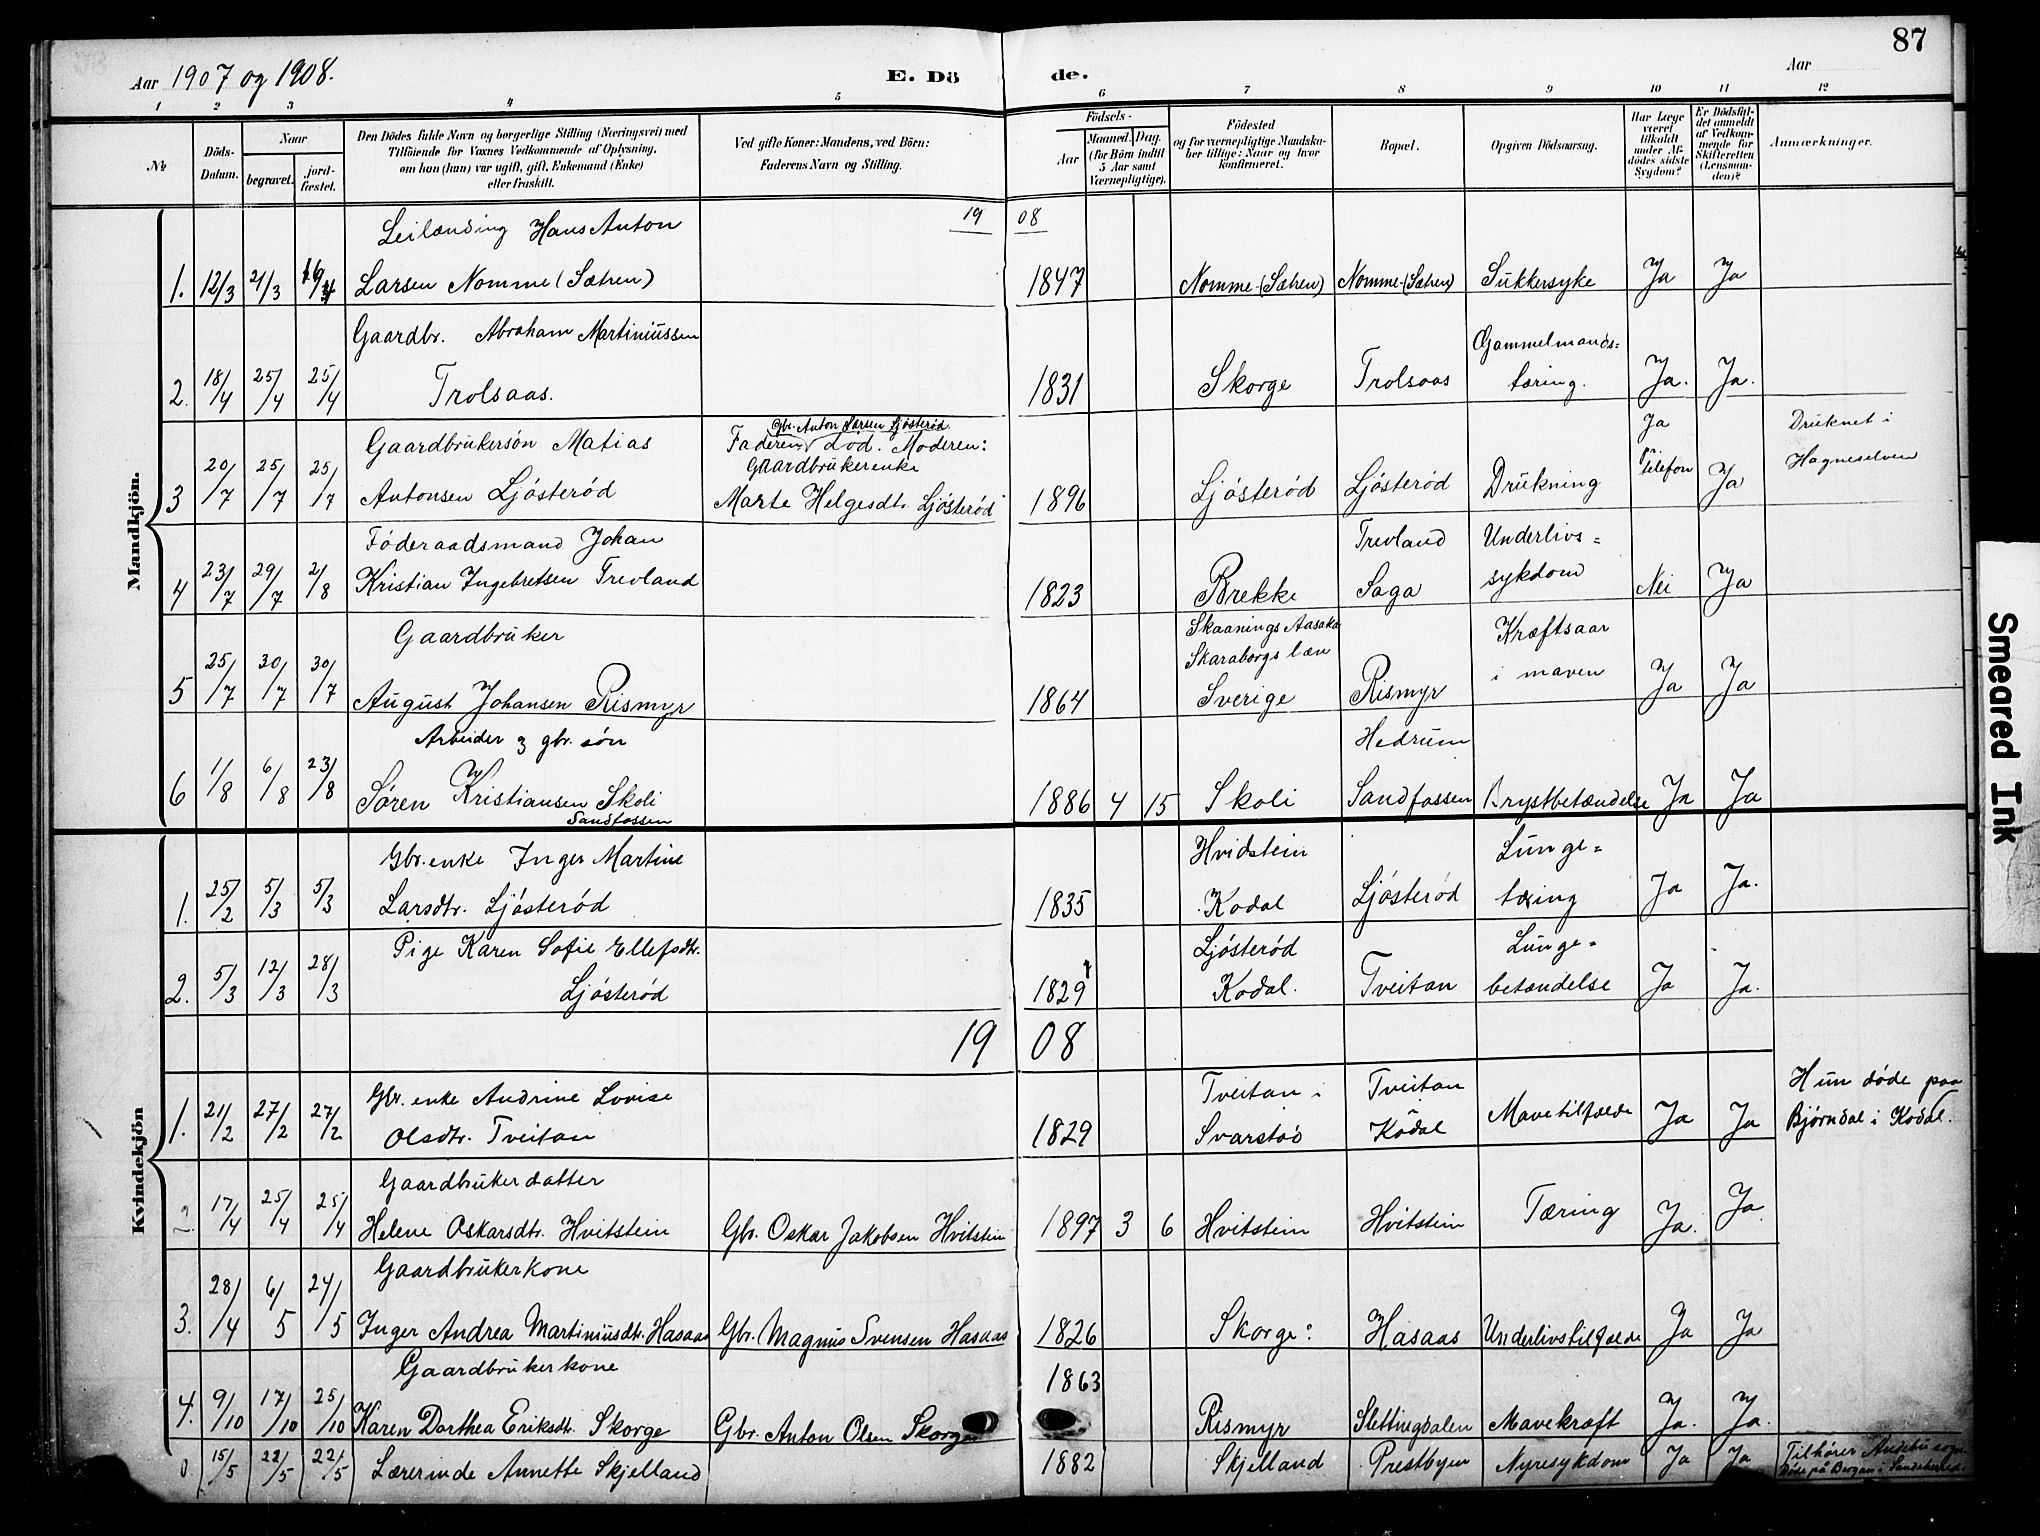 87
Aar 1907 og 1908.
E. Dö de.
Aar
1 2 3 4 5 6 7 8 9 10 11 12
No.
Döds-Datum.
Naar
begravet.
jord-fæstet.
Den Dödes fulde Navn og borgerlige Stilling (Næringsvei) med
Tilföiende for Voxnes Vedkommende af Oplysning,
om han (hun) var ugift, gift, Enkemand (Enke)
eller fraskilt.
Ved gifte Koner: Mandens, ved Börn:
Faderens Navn og Stilling.
Födsels-
Aar
Maaned. Dag.
(for Börn indtil
5 Aar samt
Værnepligtige).
Födested
og for værnepligtige Mandska-
ber tillige: Naar og hvor
konfirmeret.
Bopæl.
Opgiven Dödsaarsag.
Har Læge
været
tilkaldt
under Af-
dödes sidste
Sygdom?
Er Dödsfal-
det anmeldt
af Vedkom-
mende for
Skifteretten
(Lensman-
den)?
Anmærkninger.
Mandkjön.
19 08
Leilænding Hans Anton
1. 12/3 21/3 Larsen Nomme (Sætren) 1847 Nomme (Sætren) Nomme (Sætren) Sukkersyke Ja Ja
Gaardbr. Abraham Martiniussen Gammelmands=
2. 18/4 25/4 25/4 Trolsaas. 1831 Skorge Trolsaas tæring. Ja. Ja.
Gbr. Anton Larsen Ljøsterød
Gaardbrukersøn Matias Faderen død. Moderen: Ja Druknet i
Gaardbrukerenke pr. telefon Hagneselven
3 20/7 25/7 25/7 Antonsen Ljøsterød Marte Helgesdtr. Ljøsterød 1896 Ljøsterød Ljøsterød Drukning Ja
Føderaadsmand Johan Trevland Underlivs=
4 23/7 29/7 2/8 Kristian Ingebretsen Trevland 1823 Brekke Saga sykdom Nei Ja
Gaardbruker Skaanings Aasaka Kræftsaar
Skaraborgs læn i maven
5 25/7 30/7 30/7 August Johansen Rismyr 1864 Sverige Rismyr Ja Ja
Arbeider og gbr. søn Hedrum
6 1/8 6/8 23/8 Søren Kristiansen Skoli 1886 4 15 Skoli Sandfossen Brystbetændelse Ja Ja
Sandfossen
Kvindekjön
Gbr. enke Inger Martine Hvidstein Lunge=
1. 25/2 5/3 5/3 Larsdtr. Ljøsterød 1835 Kodal Ljøsterød tæring Ja Ja.
Pige Karen Sofie Ellefsdtr. Ljøsterød Lunge=
2. 5/3 12/3 28/3 Ljøsterød 1829 Kodal. Tveitan betændelse Ja Ja.
19 08
Gbr. enke Andrine Lovise Tveitan i Tveitan Hun døde paa
1. 21/2 27/2 27/2 Olsdtr. Tveitan 1829 Svarstad Kodal Mavetilfælde Ja Ja Bjørndal i Kodal.
Gaardbrukerdatter
2 17/4 25/4 25/4 Helene Oskarsdtr. Hvitstein Gbr. Oskar Jakobsen Hvitstein 1897 3 6 Hvitstein Hvitstein Tæring Ja. Ja
Gaardbrukerkone
3. 28/4 6/5 24/5 Inger Andrea Martiniusdtr. Hasaas Gbr. Magnus Svensen Hasaas 1826 Skorge Hasaas Underlivstilfælde Ja Ja
Gaardbrukerkone 1863
4. 9/10 17/10 25/10 Karen Dorthea Eriksdtr. Skorge Gbr. Anton Olsen Skorge Rismyr Slettingdalen Mavekræft Ja. Ja.
0 15/5 22/5 22/5 Lærerinde Annette Skjelland 1882 Skjelland Prestbyen Nyresykdom Ja Ja Tilhører Andebu sogn
Døde på Bergan i Sandeherred.
Smeared Ink